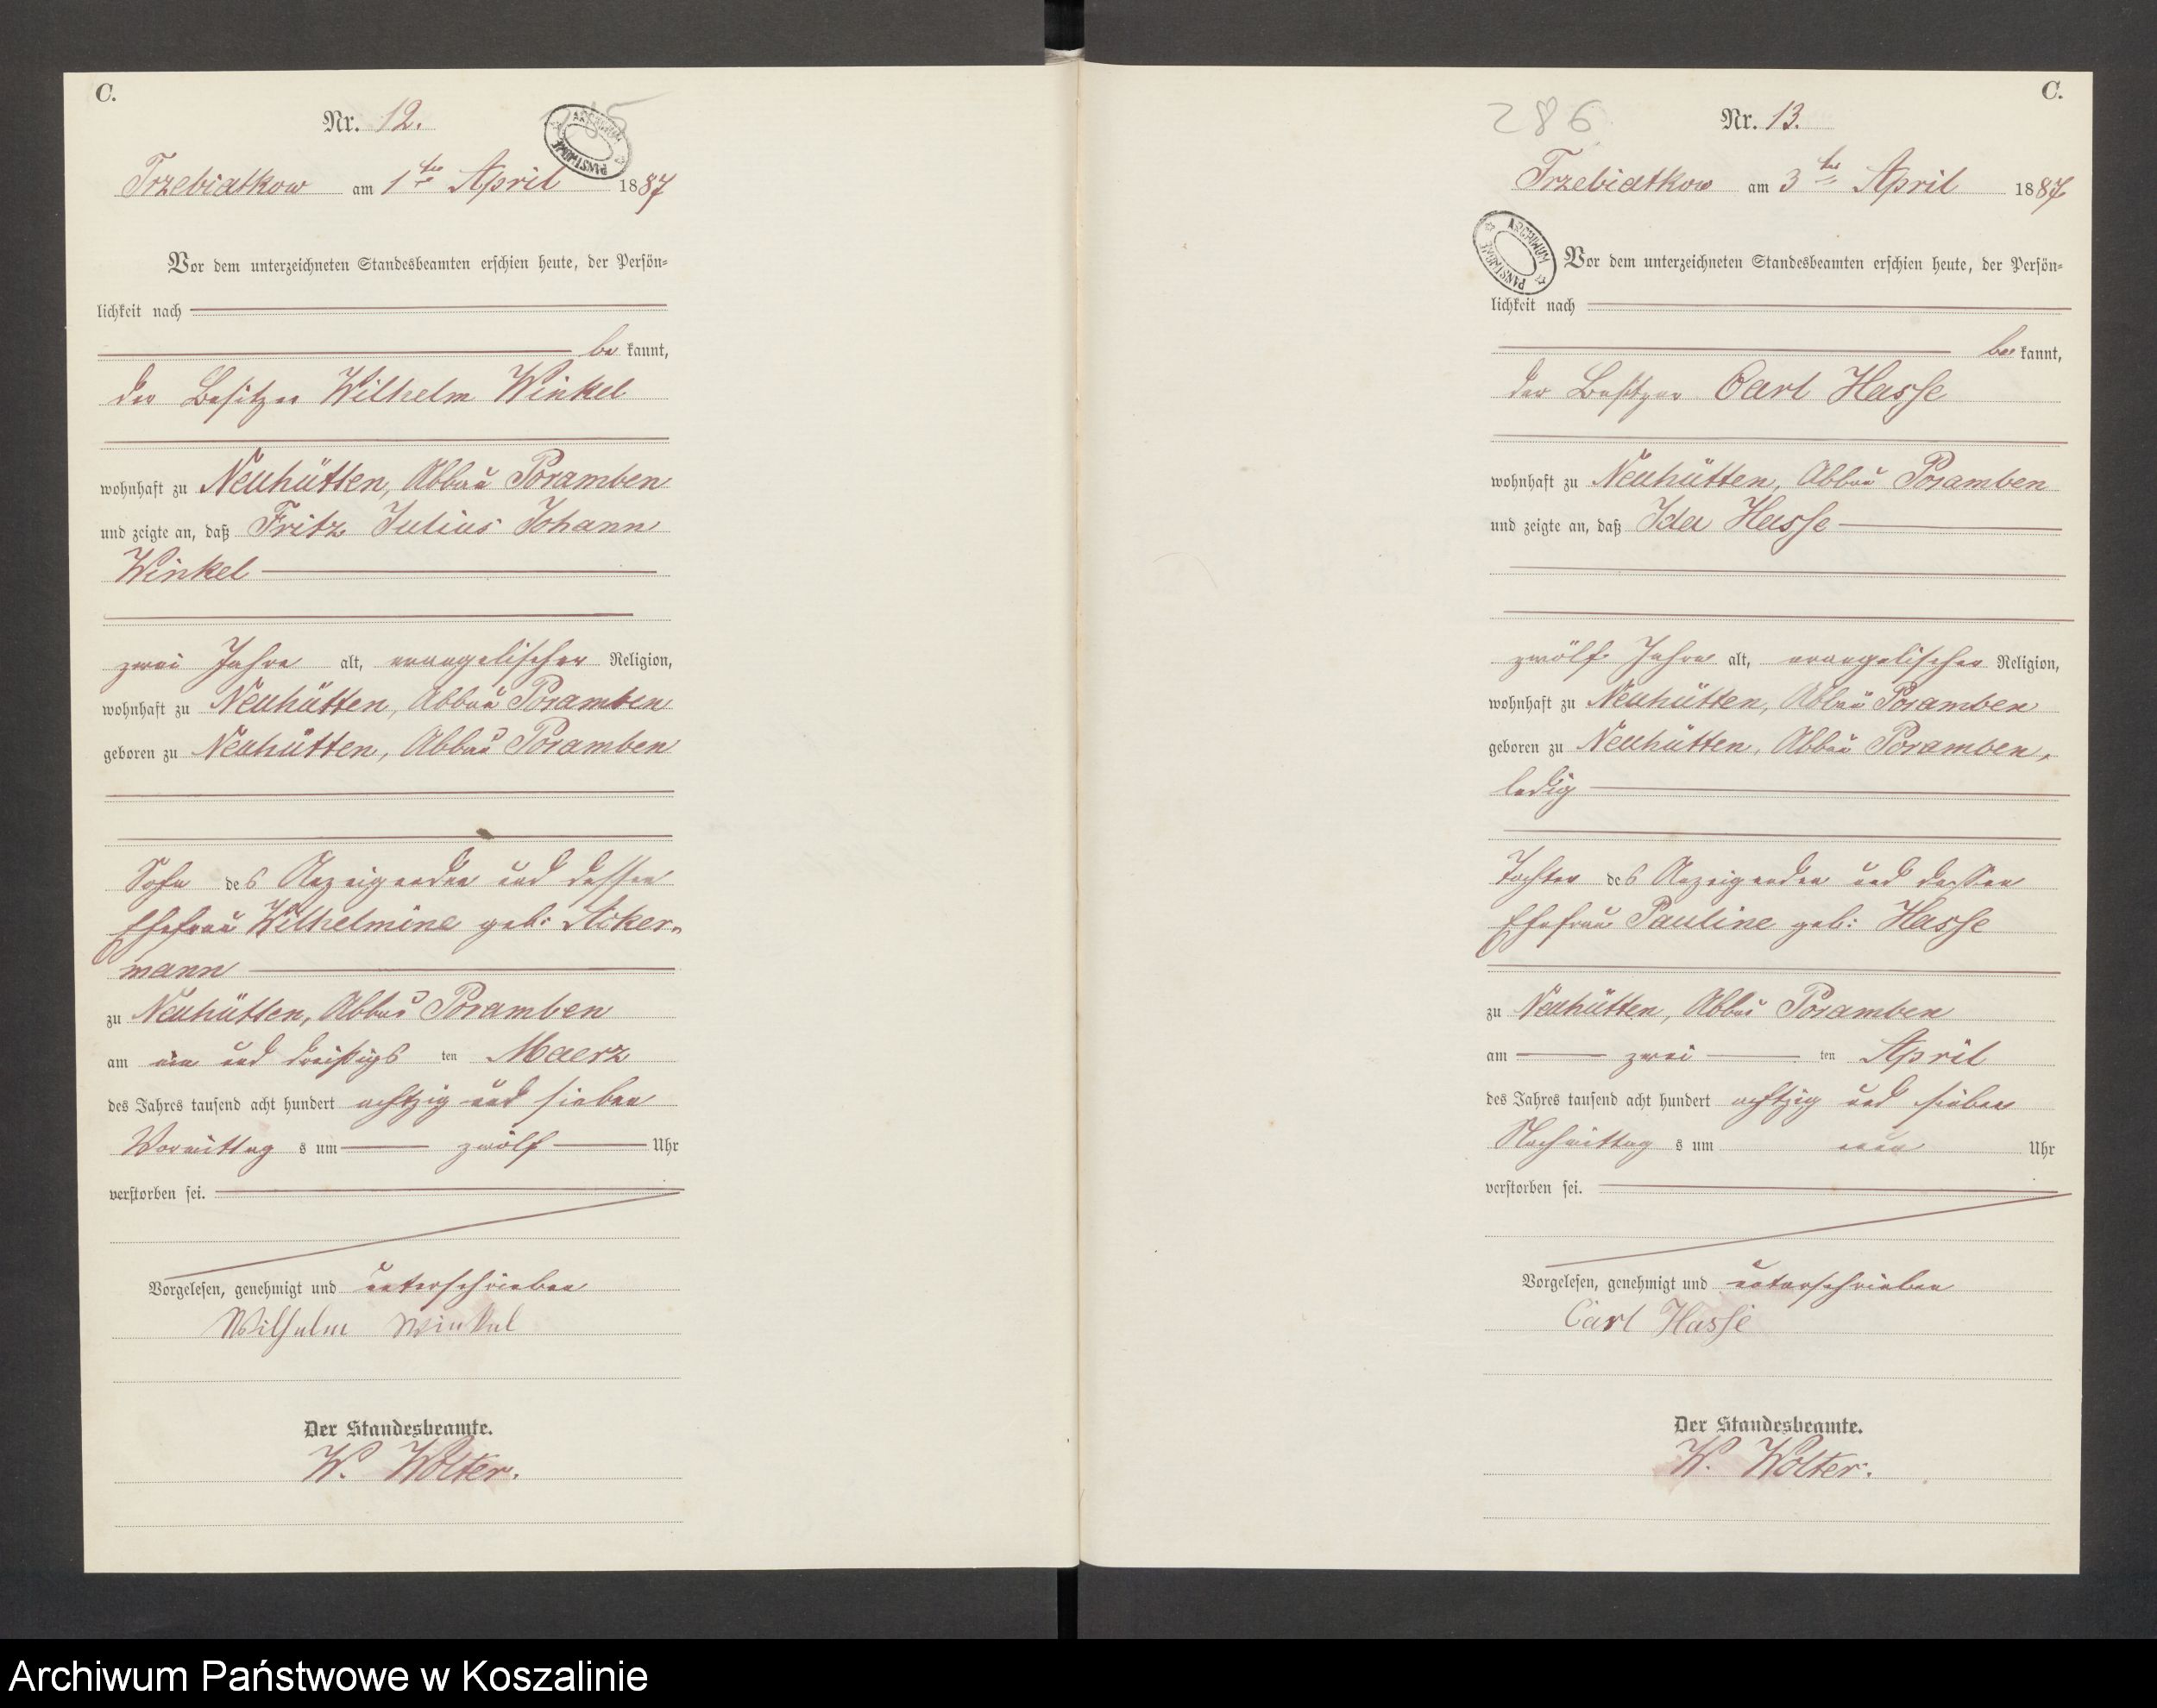 C.
Nr. 12.
ARCHIWUM PAŃSTWOWE
Trzebiatkow am 1ten April 1887
Vor dem unterzeichneten Standesbeamten erschien heute, der Persön-
lichkeit nach
be kannt,
der Besitzer Wilhelm Winkel
wohnhaft zu Neuhütten, Abbau Poramben
und zeigte an, daß Fritz Julius Johann
Winkel
zwei Jahre alt, evangelischer Religion,
wohnhaft zu Neuhütten, Abbau Poramben
geboren zu Neuhütten, Abbau Poramben
Sohn des Anzeigenden und dessen
Ehefrau Wilhelmine geb: Acker-
mann
zu Neuhütten, Abbau Poramben
am ein und dreißigs ten Maerz
des Jahres tausend acht hundert achtzig und sieben
Vormittag s um zwölf Uhr
verstorben sei.
Vorgelesen, genehmigt und unterschrieben
Wilhelm Winkel
Der Standesbeamte.
W. Wolter.
C.
286
Nr. 13.
Trzebiatkow am 3ten April 1887
ARCHIWUM PAŃSTWOWE
Vor dem unterzeichneten Standesbeamten erschien heute, der Persön-
lichkeit nach
be kannt,
der Besitzer Carl Hasse
wohnhaft zu Neuhütten, Abbau Poramben
und zeigte an, daß Ida Hasse
zwölf Jahre alt, evangelischer Religion,
wohnhaft zu Neuhütten, Abbau Poramben
geboren zu Neuhütten, Abbau Poramben,
ledig
Tochter des Anzeigenden und dessen
Ehefrau Pauline geb: Hasse
zu Neuhütten, Abbau Poramben
am zwei ten April
des Jahres tausend acht hundert achtzig und sieben
Nachmittag s um neun Uhr
verstorben sei.
Vorgelesen, genehmigt und unterschrieben
Carl Hasse
Der Standesbeamte.
W. Wolter.
Archiwum Państwowe w Koszalinie